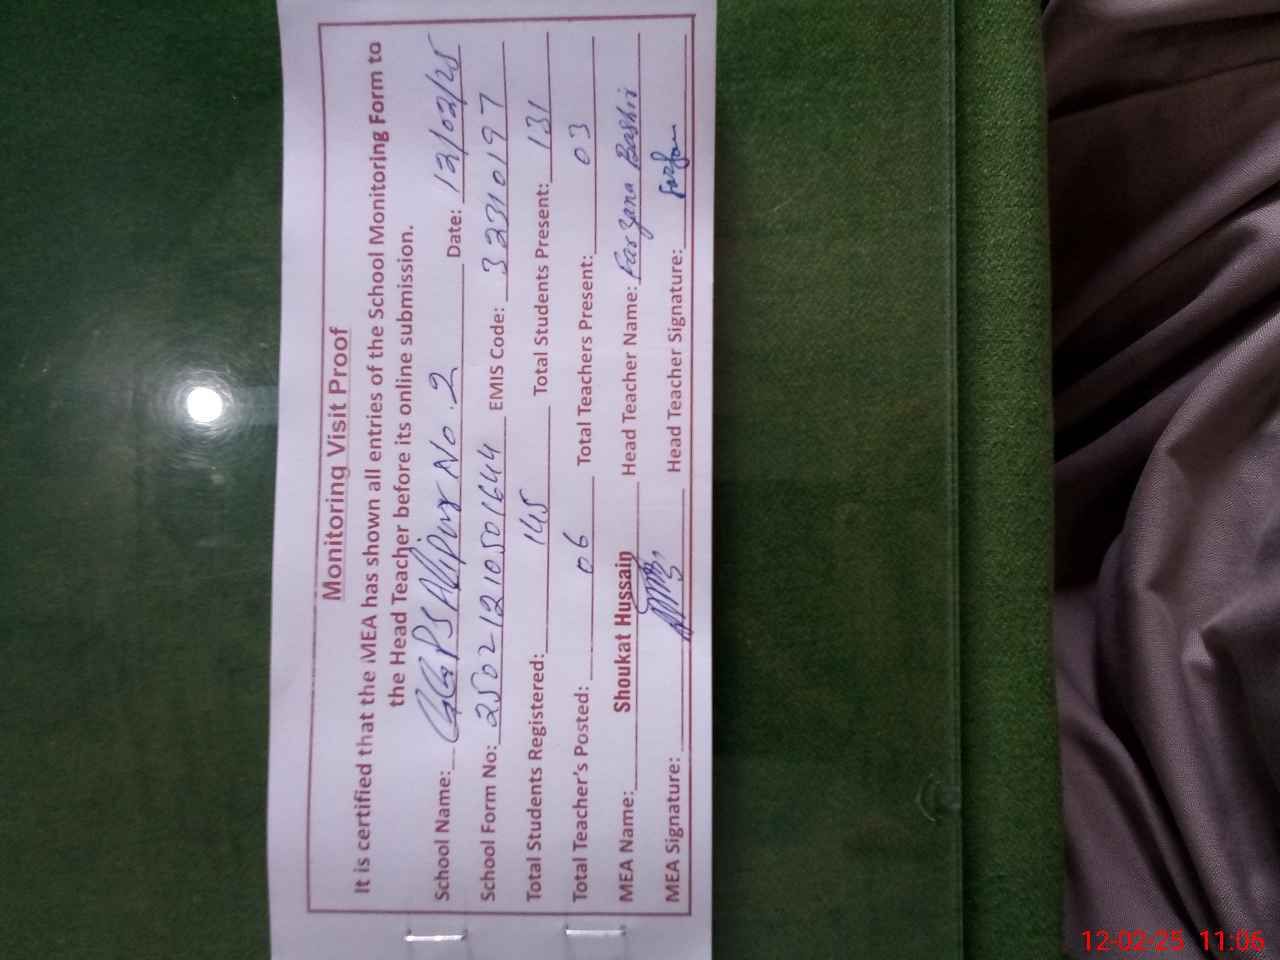 Monitoring Visit Proof
It is certified that the MEA has shown all entries of the School Monitoring Form to
the Head Teacher before its online submission.
School Name: GGPS Alipur No.2 Date: 12/02/25
School Form No: 2502121050 1644 EMIS Code: 32310197
Total Students Registered: 145 Total Students Present: 131
Total Teacher's Posted: 06 Total Teachers Present: 03
MEA Name: Shoukat Hussain Head Teacher Name: Farzana Bashir
MEA Signature: Head Teacher Signature:
12-02-25 11:06